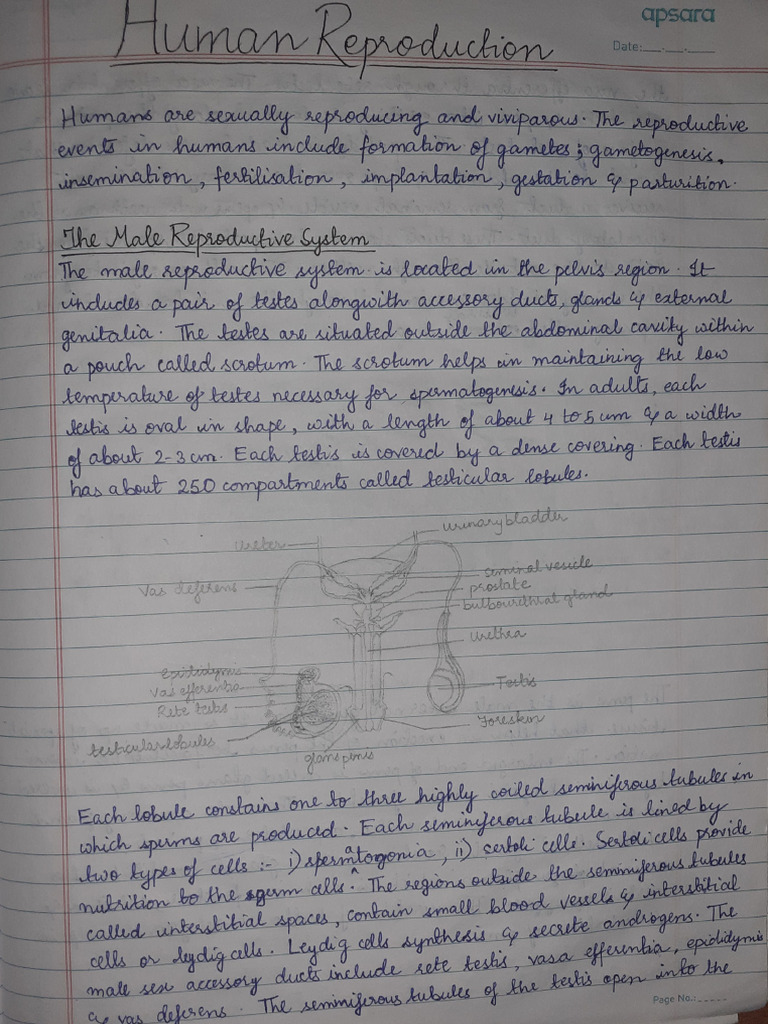 apsara
Date:
Human Reproduction
Humans are sexually reproducing and viviparous. The reproductive
events in humans include formation of gametes; gametogenesis,
insemination, fertilisation, implantation, gestation & parturition.
The Male Reproductive System
The male reproductive system is located in the pelvis region. It
includes a pair of testes alongwith accessory ducts, glands & external
genitalia. The testes are situated outside the abdominal cavity within
a pouch called scrotum. The scrotum helps in maintaining the low
temperature of testes necessary for spermatogenesis. In adults, each
testis is oval in shape, with a length of about 4 to 5 cm & a width
of about 2-3 cm. Each testis is covered by a dense covering. Each testis
has about 250 compartments called testicular lobules.
urinary bladder
ureter
seminal vesicle
Vas deferens
prostate
bulbourethral gland
urethra
epididymis
Vas efferentia
Testis
Rete testis
Foreskin
testicular lobules
glans penis
Each lobule constains one to three highly coiled seminiferous tubules in
which sperms are produced. Each seminiferous tubule is lined by
two types of cells :- i) spermatogonia, ii) sertoli cells. Sertoli cells provide
nutrition to the germ cells. The regions outside the seminiferous tubules
called interstitial spaces, contain small blood vessels & interstitial
cells or leydig cells. Leydig cells synthesis & secrete androgens. The
male sex accessory ducts include rete testis, vasa efferentia, epididymis
& vas deferens. The seminiferous tubules of the testis open into the
Page No.: